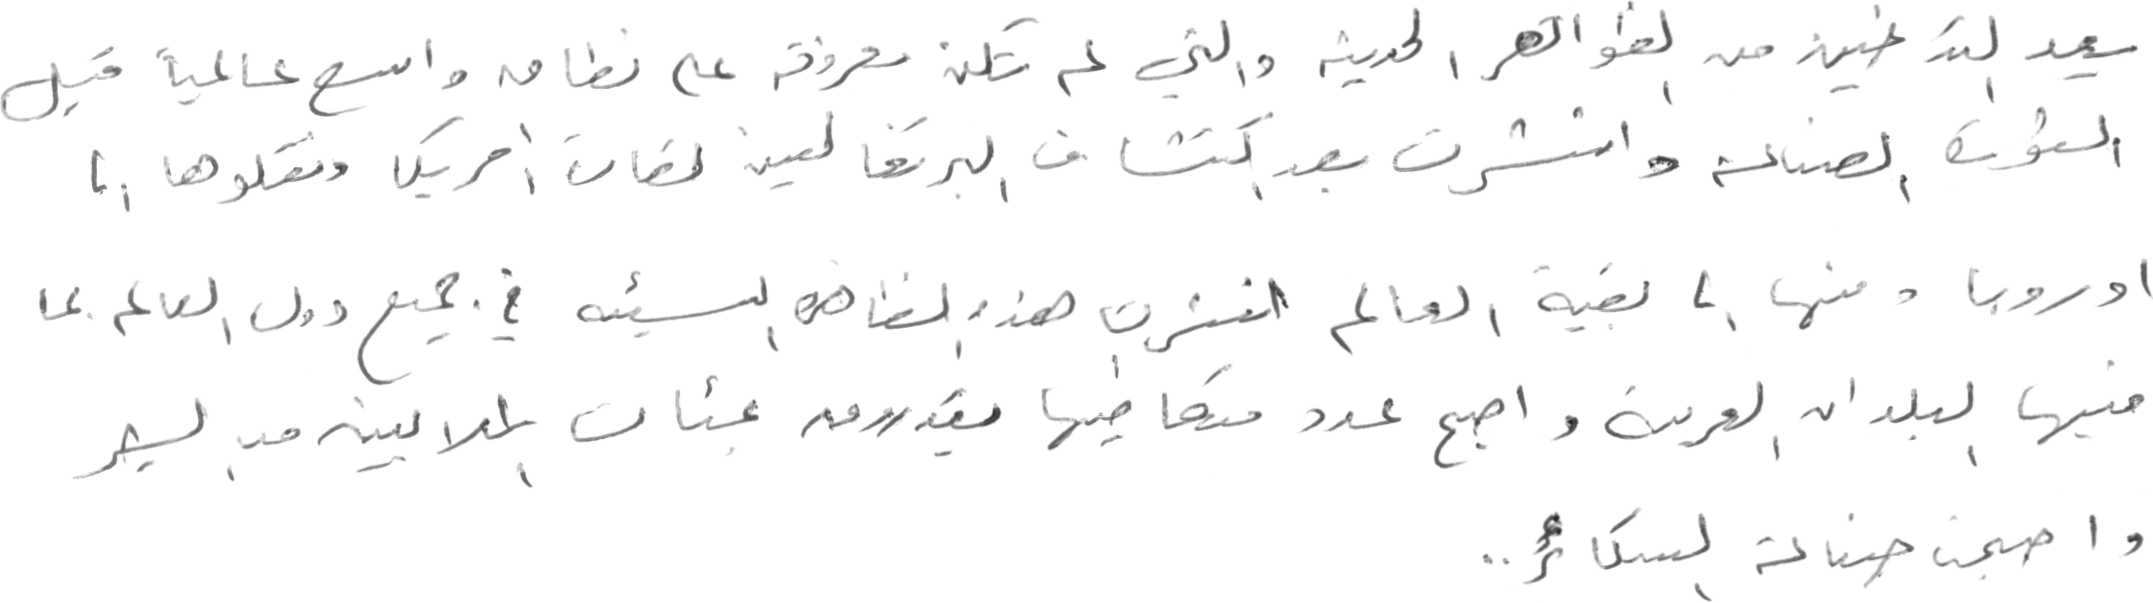 يعد التدخين من الظواهر الحديثة والتي لم تكن معروفة على نطاق واسع عالمياً قبل
الثورة الصناعية وانتشرت بعد اكتشاف البرتغاليين لقارة أمريكا ونقلوها الى
اوروبا ومنها الى بقية العالم انتشرت هذه الظاهرة السيئة في جميع دول العالم بما
فيها البلدان العربية واصبح عدد متعاطيها يقدرون بمئات الملايين من البشر
واصبحت صناعة السكائر..